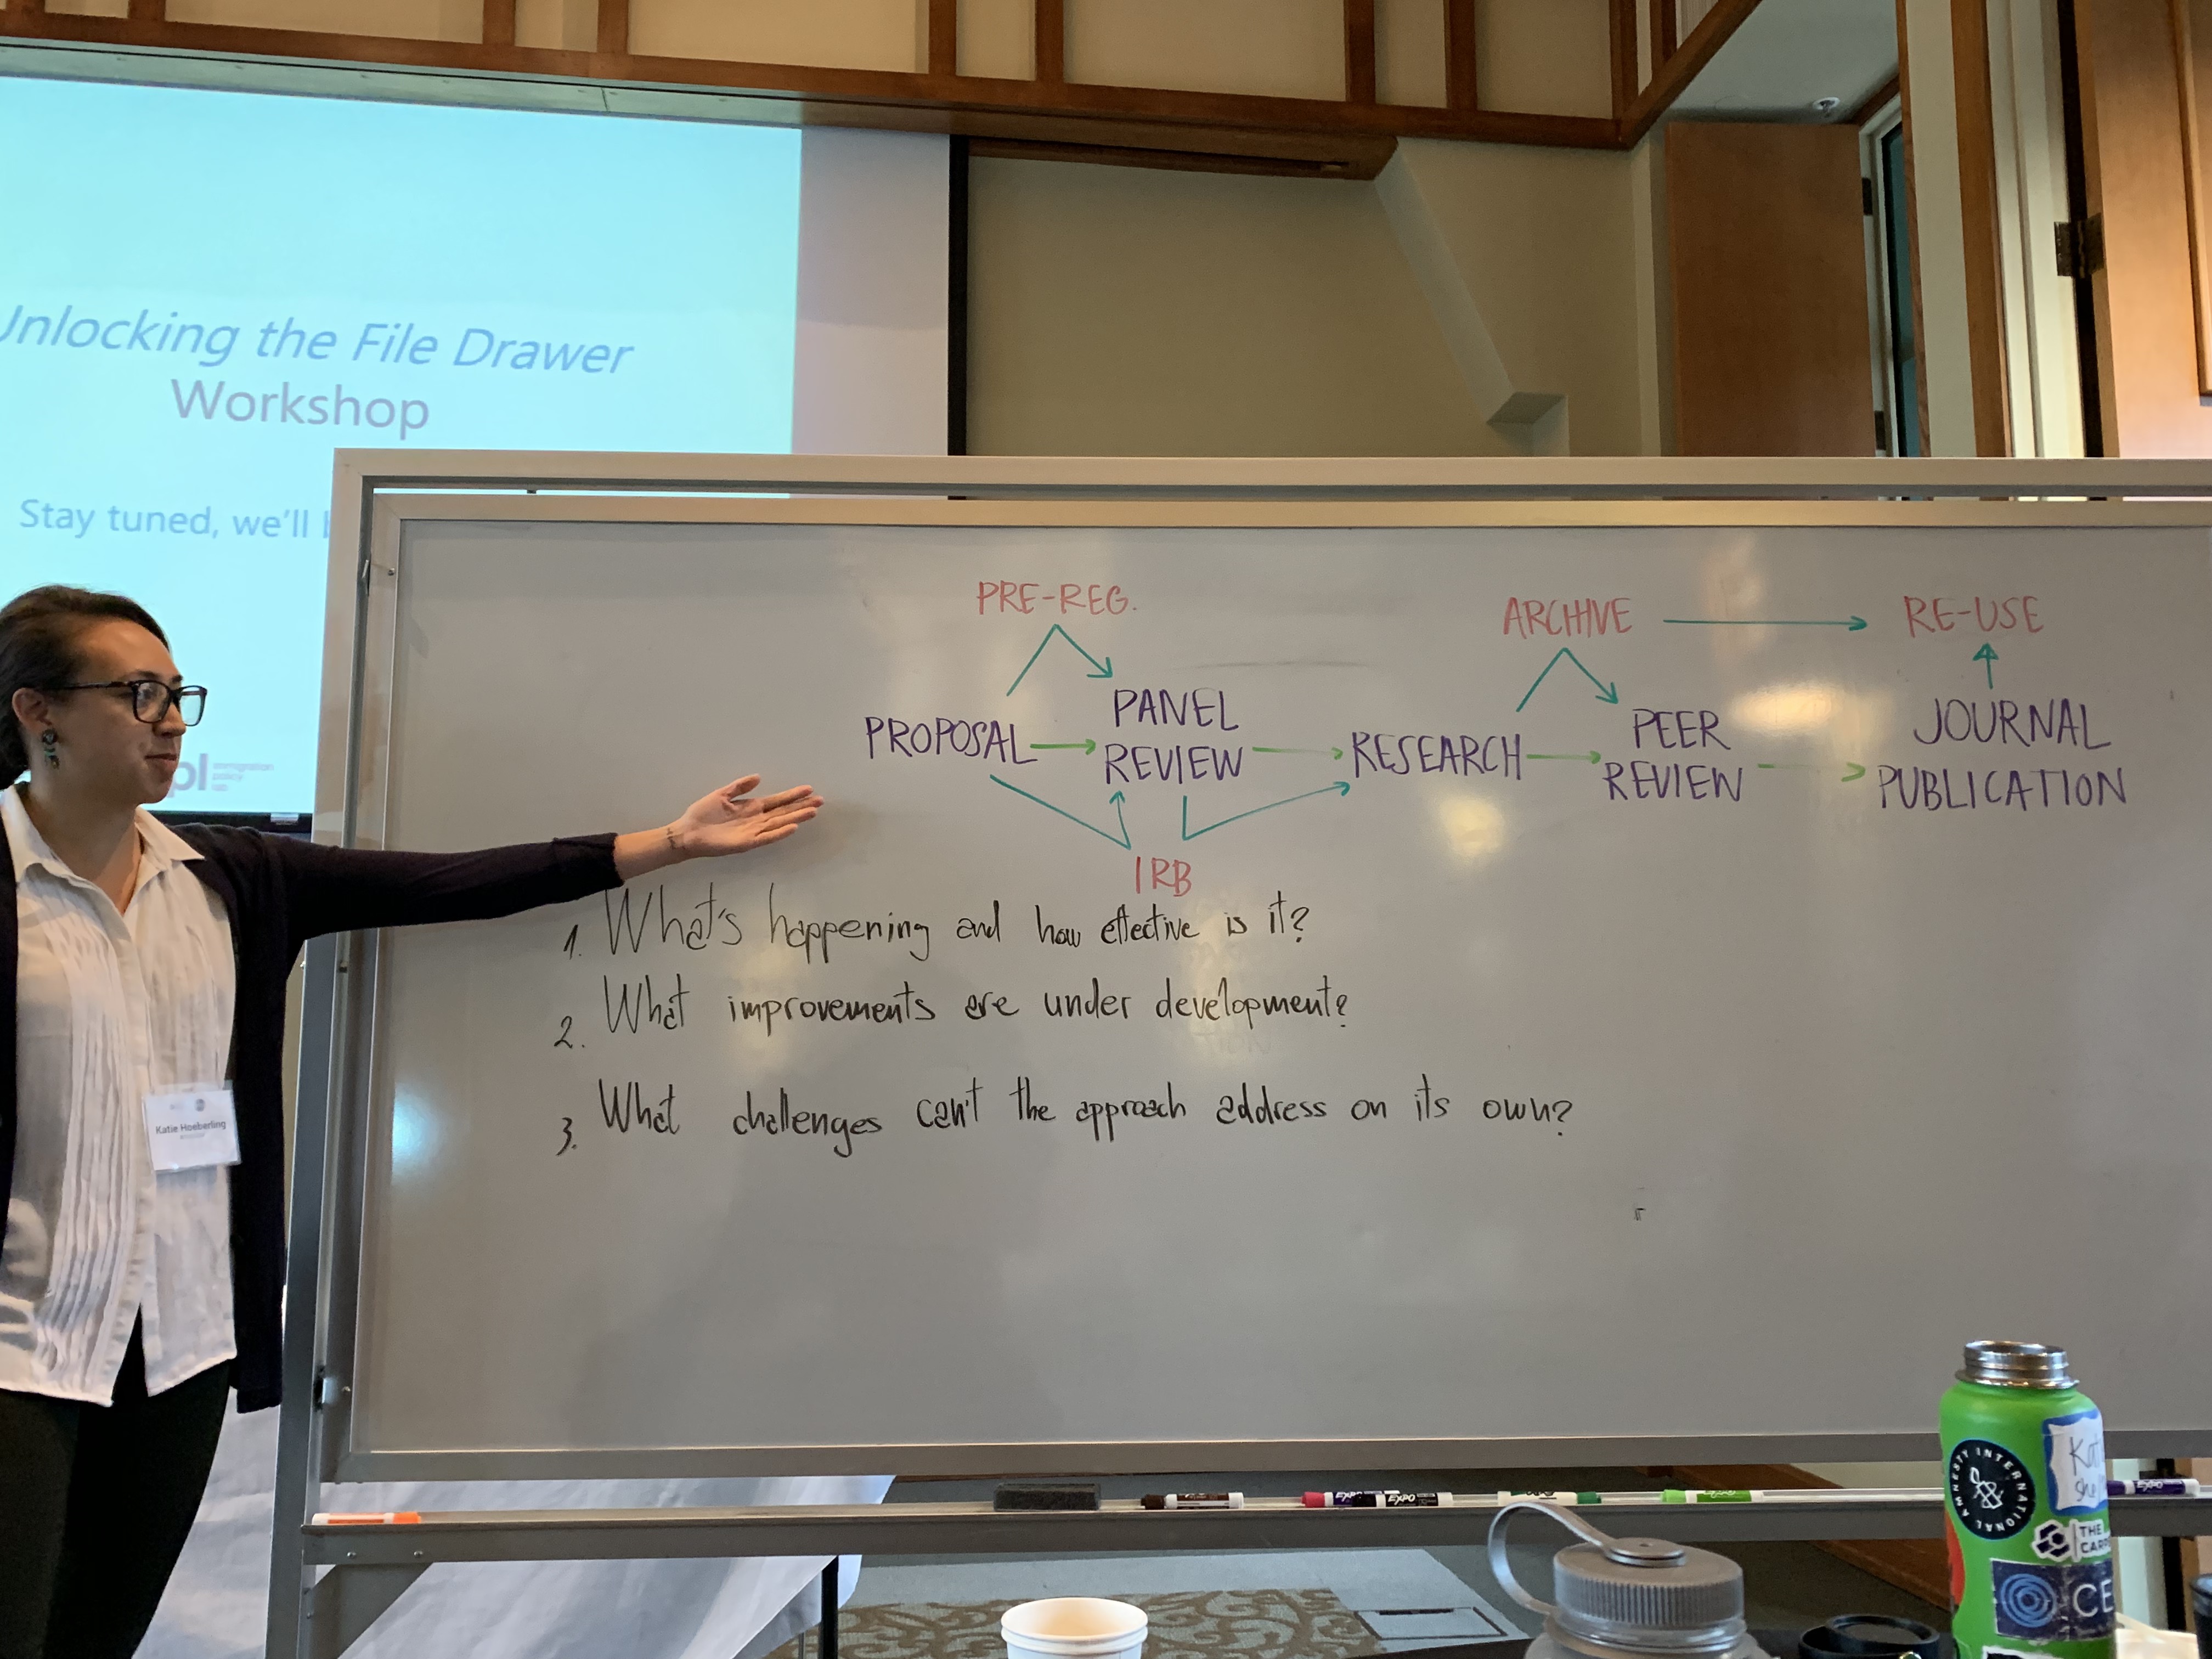 Unlocking the File Drawer
Workshop
Stay tuned, we'll
pl immigration
policy
lab
PRE-REG.
ARCHIVE
RE-USE
PROPOSAL
PANEL
REVIEW
RESEARCH
PEER
REVIEW
JOURNAL
PUBLICATION
IRB
1. What's happening and how effective is it?
2. What improvements are under development?
3. What challenges can't the approach address on its own?
Katie Hoeberling
EXPO
EXPO
EXPO
AMNESTY INTERNATIONAL
THE
CE